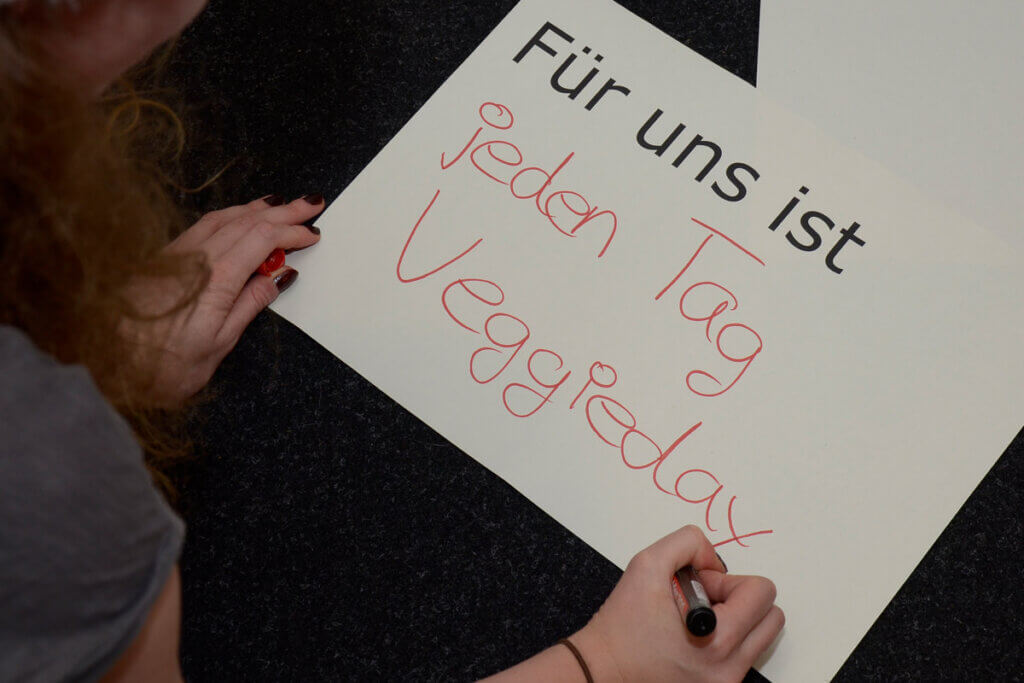 Für uns ist
jeden Tag
Veggieday